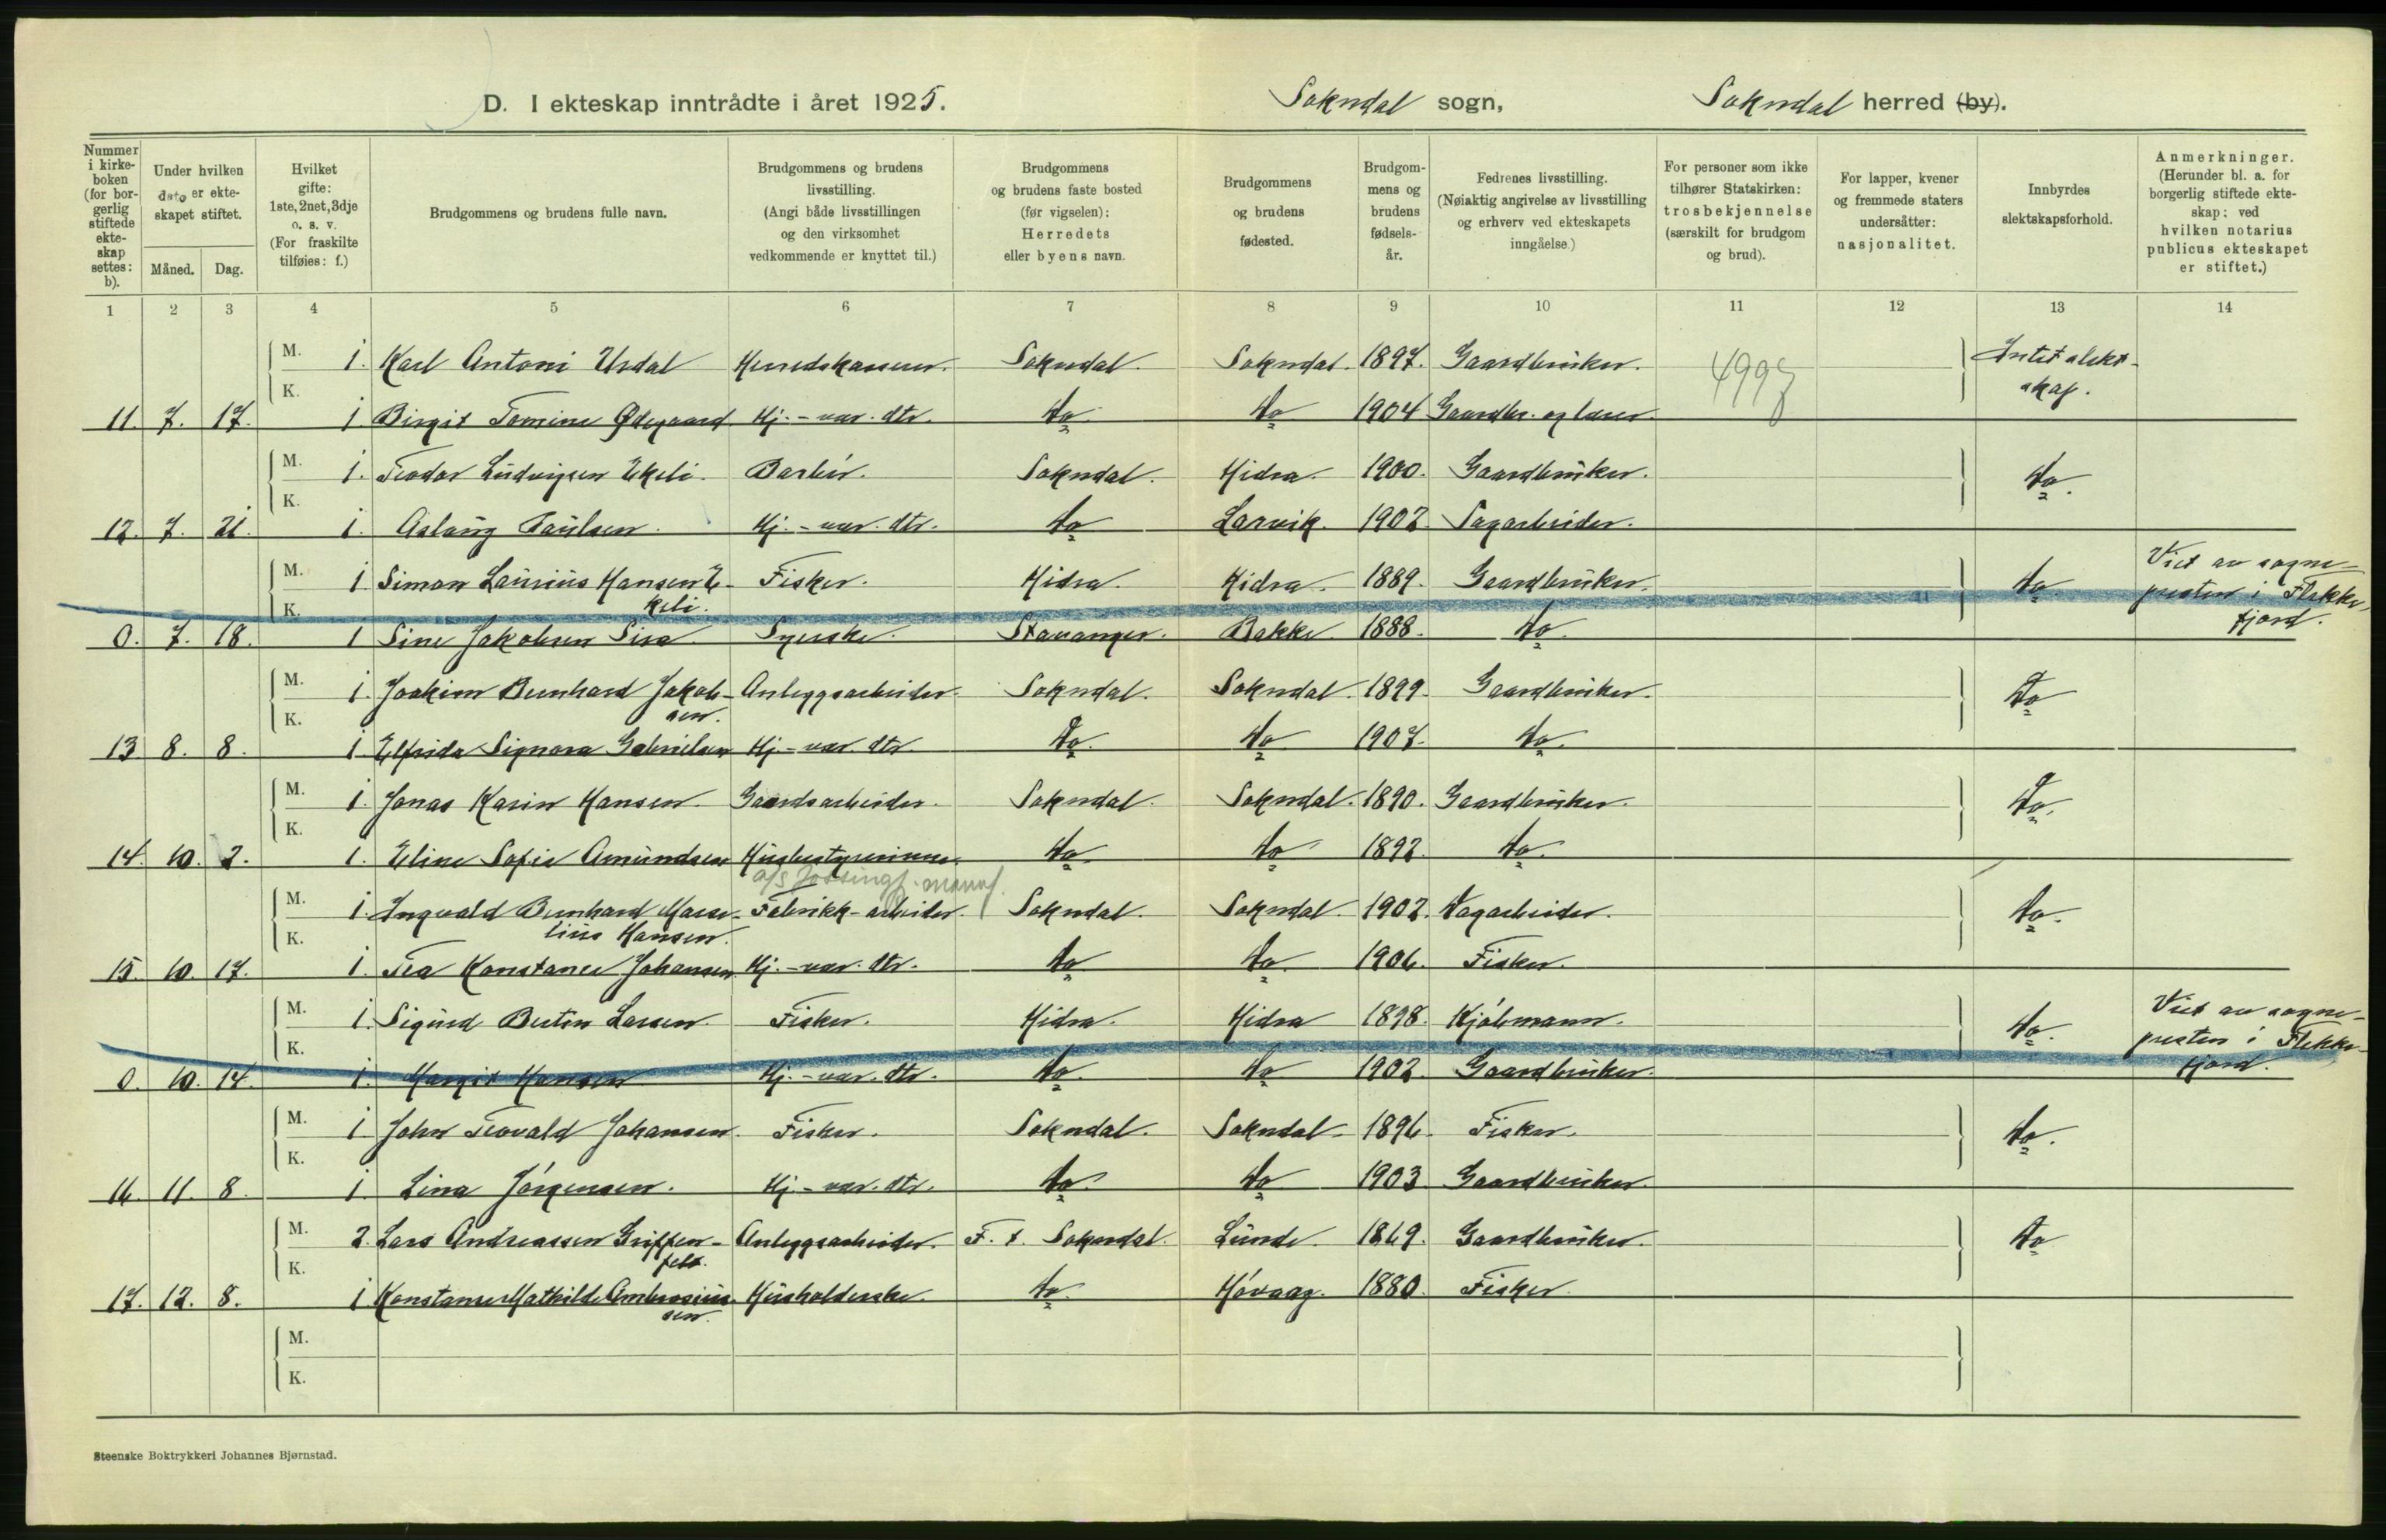 D. I ekteskap inntrådte i året 1925. Sokndal sogn, Sokndal herred (by).
Nummer i kirkeboken (for borgerlig stiftede ekteskap settes: b).
Under hvilken dato er ekteskapet stiftet.
Måned. Dag.
Hvilket gifte: 1ste, 2net, 3dje o. s. v. (For fraskilte tilføies: f.)
Brudgommens og brudens fulle navn.
Brudgommens og brudens livsstilling. (Angi både livsstillingen og den virksomhet vedkommende er knyttet til.)
Brudgommens og brudens faste bosted (før vigselen): Herredets eller byens navn.
Brudgommens og brudens fødested.
Brudgommens og brudens fødselsår.
Fedrenes livsstilling. (Nøiaktig angivelse av livsstilling og erhverv ved ekteskapets inngåelse.)
For personer som ikke tilhører Statskirken: trosbekjennelse (særskilt for brudgom og brud).
For lapper, kvener og fremmede staters undersåtter: nasjonalitet.
Innbyrdes slektskapsforhold.
Anmerkninger. (Herunder bl. a. for borgerlig stiftede ekteskap: ved hvilken notarius publicus ekteskapet er stiftet.)
1 2 3 4 5 6 7 8 9 10 11 12 13 14
M. 1. Karl Antoni Urdal Herredskasserer. Sokndal. Sokndal. 1897. Gaardbruker. 4998 Intet slekt-
K. skap.
11. 7. 17. 1 Birgit Tomine Ødegaard Hj.-vær. dtr. do do 1904 Gaardbr. og lærer.
M. 1. Teodor Ludvigsen Ekeli. Barber. Sokndal. Hidra. 1900. Gaardbruker. do.
K.
12. 7. 21. 1. Aslaug Paulsen. Hj.-vær. dtr. do Larvik. 1902. Sagarbeider.
M. 1 Simon Laurius Hansen E- Fisker. Hidra. Hidra. 1889. Gaardbruker. do Viet av sogne-
K. keli. presten i Flekke-
0. 7. 18. 1 Sine Jakobsen Sira Syerske. Stavanger. Bakke. 1888. do. fjord.
M. 1. Joakim Bernhard Jakob- Anleggsarbeider. Sokndal. Sokndal. 1899. Gaardbruker. do
K. sen.
13 8. 8. 1 Elfrida Signora Gabrielsen Hj.-vær. dtr. do. do 1907. do.
M. 1. Jonas Karin Hansen. Gaardsarbeider. Sokndal. Sokndal. 1890. Gaardbruker. do.
K.
14. 10. 2. 1. Eline Sofie Amundsen Husbestyrerinne. do do 1892. do.
A/S Jøssingf. manuf.
M. 1. Ingvald Bernhard Marse- Fabrikk-arbeider. Sokndal. Sokndal. 1902. Dagarbeider. do.
K. lius Hansen.
15. 10. 17. 1. Tea Konstance Johansen Hj.-vær. dtr. do do 1906. Fisker.
M. 1. Sigurd Bertin Larsen. Fisker. Hidra. Hidra 1898. Kjøbmann. do. Viet av sogne-
K. presten i Flekke-
0. 10. 14. 1. Margit Hansen Hj.-vær. dtr. do. do 1902. Gaardbruker. fjord.
M. 1. John Teovald Johansen. Fisker. Sokndal. Sokndal. 1896. Fisker. do.
K.
16 11. 8. 1. Lina Jørgensen. Hj.-vær. dtr. do. do 1903 Gaardbruker.
M. 2. Lars Andreassen Griffen- Anleggsarbeider. F. t. Sokndal. Lunde. 1869. Gaardbruker. do
K. felt.
17. 12. 8. 1 Konstanse Mathilde Ambrosius- Husholderske. do. Høvaag. 1880. Fisker
sen.
M.
K.
Steenske Boktrykkeri Johannes Bjørnstad.